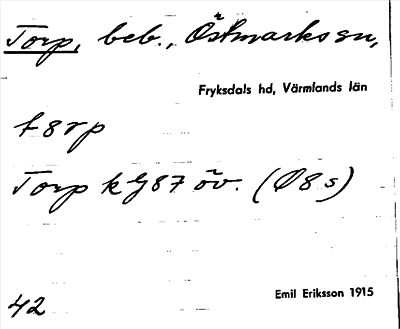 Torp, beb., Östmarks sn,
Fryksdals hd, Värmlands län
t8rp
Torp kG87 öv. (Ø8s)
Emil Eriksson 1915
42